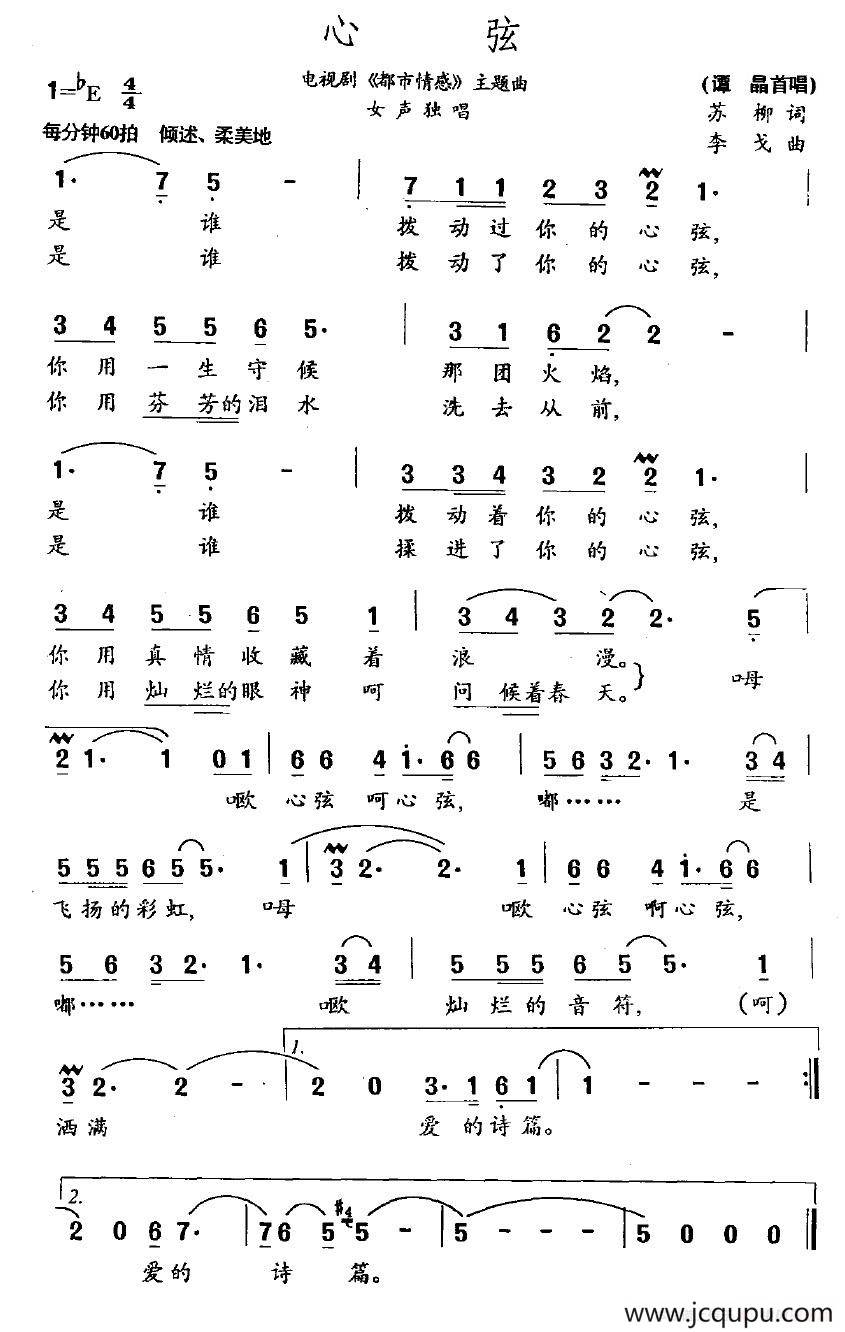 心 弦
电视剧《都市情感》主题曲
女声独唱
1=♭E 4/4
每分钟60拍 倾述、柔美地
(谭 晶首唱)
苏 柳 词
李 戈 曲
1· 7 5 - | 7 1 1 2 3 2 1· |
是 谁 拨 动 过 你 的 心 弦,
是 谁 拨 动 了 你 的 心 弦,
3 4 5 5 6 5· | 3 1 6 2 2 - |
你 用 一 生 守 候 那 团 火 焰,
你 用 芬 芳 的 泪 水 洗 去 从 前,
1· 7 5 - | 3 3 4 3 2 2 1· |
是 谁 拨 动 着 你 的 心 弦,
是 谁 揉 进 了 你 的 心 弦,
3 4 5 5 6 5 1 | 3 4 3 2 2· 5 |
你 用 真 情 收 藏 着 浪 漫。
你 用 灿 烂 的 眼 神 呵 问 候 着 春 天。 呣
2 1· 1 0 1 | 6 6 4 1· 6 6 | 5 6 3 2· 1· 3 4 |
呕 心 弦 呵 心 弦, 嘟…… 是
5 5 5 6 5 5· 1 | 3 2· 2· 1 | 6 6 4 1· 6 6 |
飞 扬 的 彩 虹, 呣 呕 心 弦 啊 心 弦,
5 6 3 2· 1· 3 4 | 5 5 5 6 5 5· 1 |
嘟…… 呕 灿 烂 的 音 符, (呵)
1.
3 2· 2 - | 2 0 3· 1 6 1 | 1 - - - :|
洒 满 爱 的 诗 篇。
2.
2 0 6 7· | 7 6 5 #4 5 - - | 5 - - - | 5 0 0 0 |
爱 的 诗 篇。
www.jcqupu.com